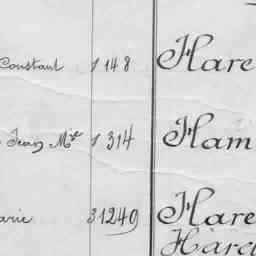 Constant 1 148 Hare
Jean Mie 1 314 Ham
arie 3 1249 Hare
Harc